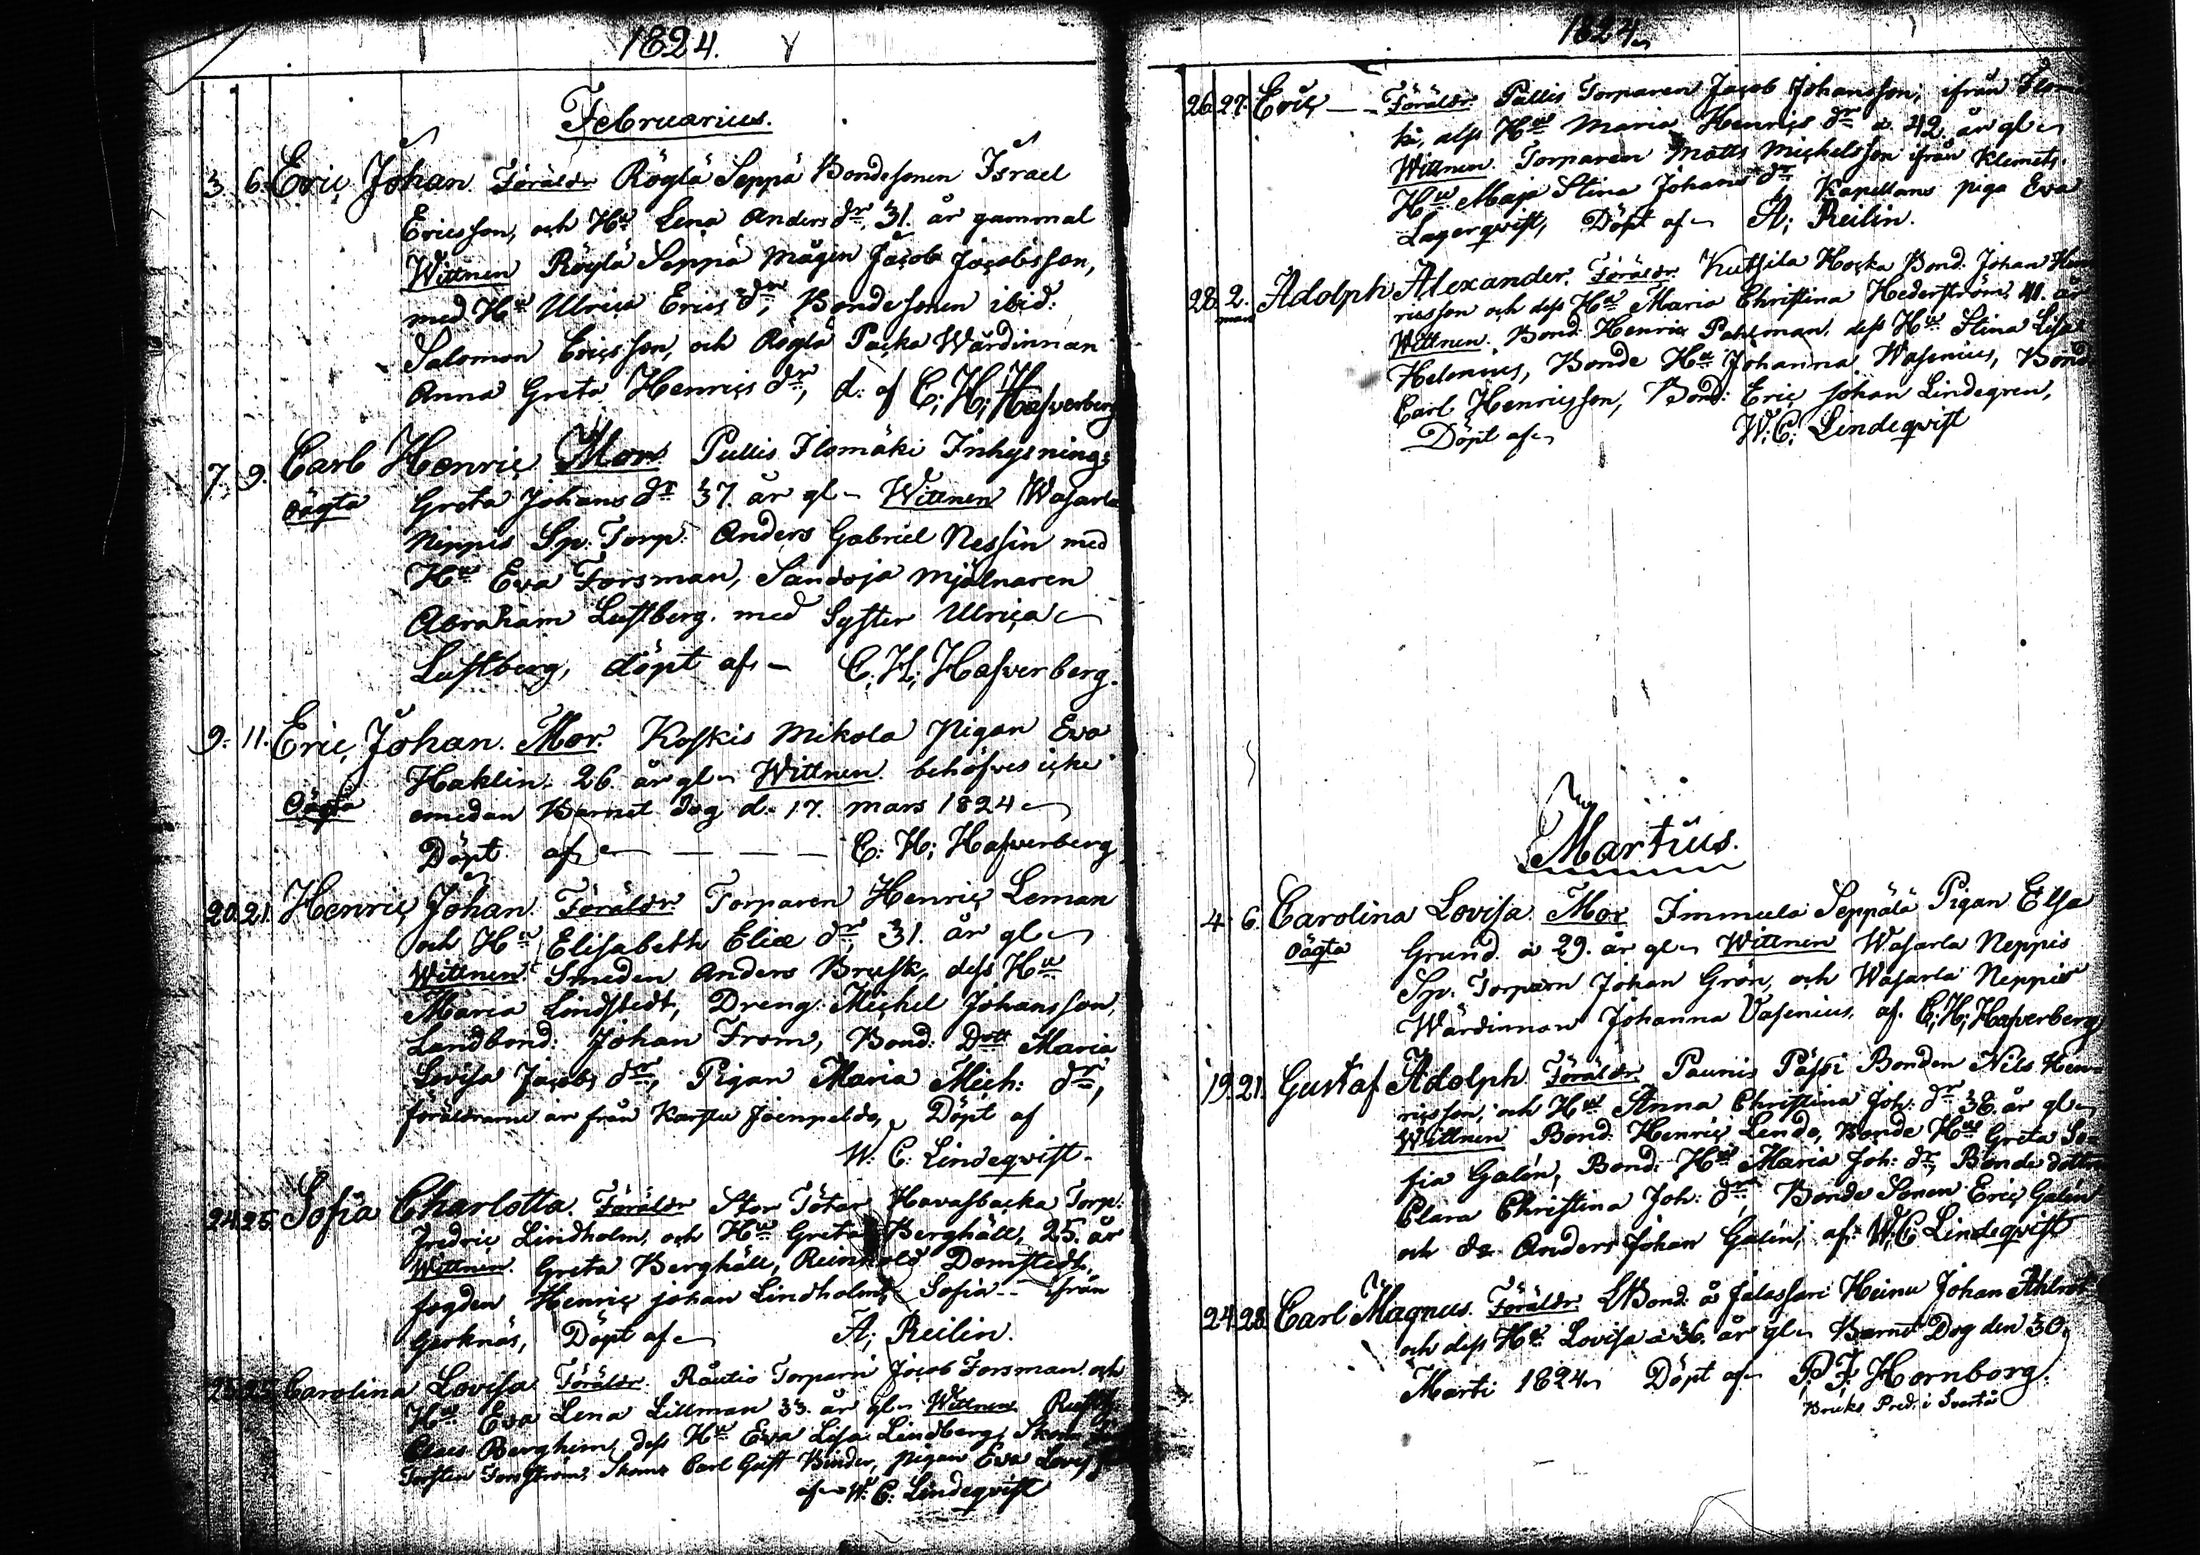 1824.
Februarius.
3. 6. Eric Johan. Föräldr Röglä Seppä Bondesonen Israel
Ericsson, och Hu Lena Anders dr, 31. år gammal
Wittnen Röylä Seppä mågen Jacob Jacobsson,
med Hu Ulrica Erics dr, Bondesonen ibid:
Salomon Ericsson, och Röglä Packa Wärdinnan
Anna Greta Henrics dr, d: af C; H; Hafverberg
7. 9. Carl Henric Mor Pullis Ilomäki Inhysning:
oägta Greta Johans dr 37. år gl Wittnen Wasarla
Neppis Sp: Torp: Anders Gabriel Nessin med
Hu Eva Forsman, Sandoja mjölnaren
Abraham Lustberg. med Syster Ulrica
Lustberg, döpt af C; H; Hafverberg.
9. 11. Eric Johan. Mor. Koskis Mikola pigan Eva
Haklin. 26. år gl Wittnen behöfves icke
Oägta emedan Barnet dog d. 17. mars 1824
Döpt af C: H; Hafverberg
20. 21. Henric Johan. Föräldr Torparen Henric Leman
och Hu Elisabeth Eliæ dr 31. år gl
Wittnen Smeden Anders Brusk, dess Hu
Maria Lindstedt, Dreng: Michel Johansson,
Landbond: Johan From, Bond: Dott Maria
Lovisa Jacobs dr, Pigan Maria Mich: dr,
föräldrarne är från Karstu Joenpelda, Döpt af
W: C: Lindeqvist.
24. 25. Sofia Charlotta. Föräldr Stor Tötar Havasbacka Torp:
Fredric Lindholm, och Hu Greta Berghäll, 25. år
Wittnen. Greta Berghäll, Reinhold Domstedt,
fogden Henric Johan Lindholm, Sofia -- ifrån
Gerknäs, Döpt af A; Reilin.
25. 25. Carolina Lovisa Föräldr. Rautio Torparn Jacob Forsman och
Hu Eva Lena Lillman 33. år gl Wittnen
Claes Berghem, dess Hu Eva Lisa Lindberg,
Carl Gust Binder, pigan Eva
af W: C: Lindeqvist
1824
26. 27. Eric — Föräldr. Pullis Torparen Jacob Johansson, ifrån Ilomä
ki, dess Hu Maria Henrics dr a 42. år gl
Wittnen. Torparen Matts Michelsson ifrån Klemets.
Hu Maja Stina Johans dr, Kapellans piga Eva
Lagerqvist, Döpt af A; Reilin.
28. 2. mars Adolph Alexander. Föräldr. Kutsila Hocka Bond. Johan Hen
ricsson och dess Hu Maria Christina Hederström, 41. år
Wittnen. Bond. Henric Pahlman. dess Hu Stina Lisa
Helenius, Bonde Hu Johanna Wasenius, Bond
Carl Henricsson, Bond: Eric Johan Lindegren,
Döpt af W: C: Lindeqvist
Martius.
4. 6. Carolina Lovisa. Mor Immula Seppälä Pigan Elsa
oägta Grund. a 29. år gl Wittnen Wasarla Neppis
Sp: Torparn Johan Grön, och Wasarla Neppis
Wärdinnan Johanna Vasenius. af. C; H; Hafverberg
19. 21. Gustaf Adolph Föräldr Paunis Pässi Bonden Nils Hen=
ricsson, och Hu Anna Christina Joh: dr 38. år gl
Wittnen Bond. Henric Lende, Bonde Hu Greta So=
fia Galén, Bond: Hu Maria Joh: dr, Bonde dotter
Clara Christina Joh: dr, Bonde Sonen Eric Galén
och do Anders Johan Galén, af: W. C. Lindeqvist
24. 28. Carl Magnus. Föräldr LBond: å Jalassari Heinu Johan Ahlrot
och dess Hu Lovisa a 36. år gl Barnet Dog den 30.
Marti 1824 Döpt af P. F. Hornborg.
Bruks Pred: i Svartå